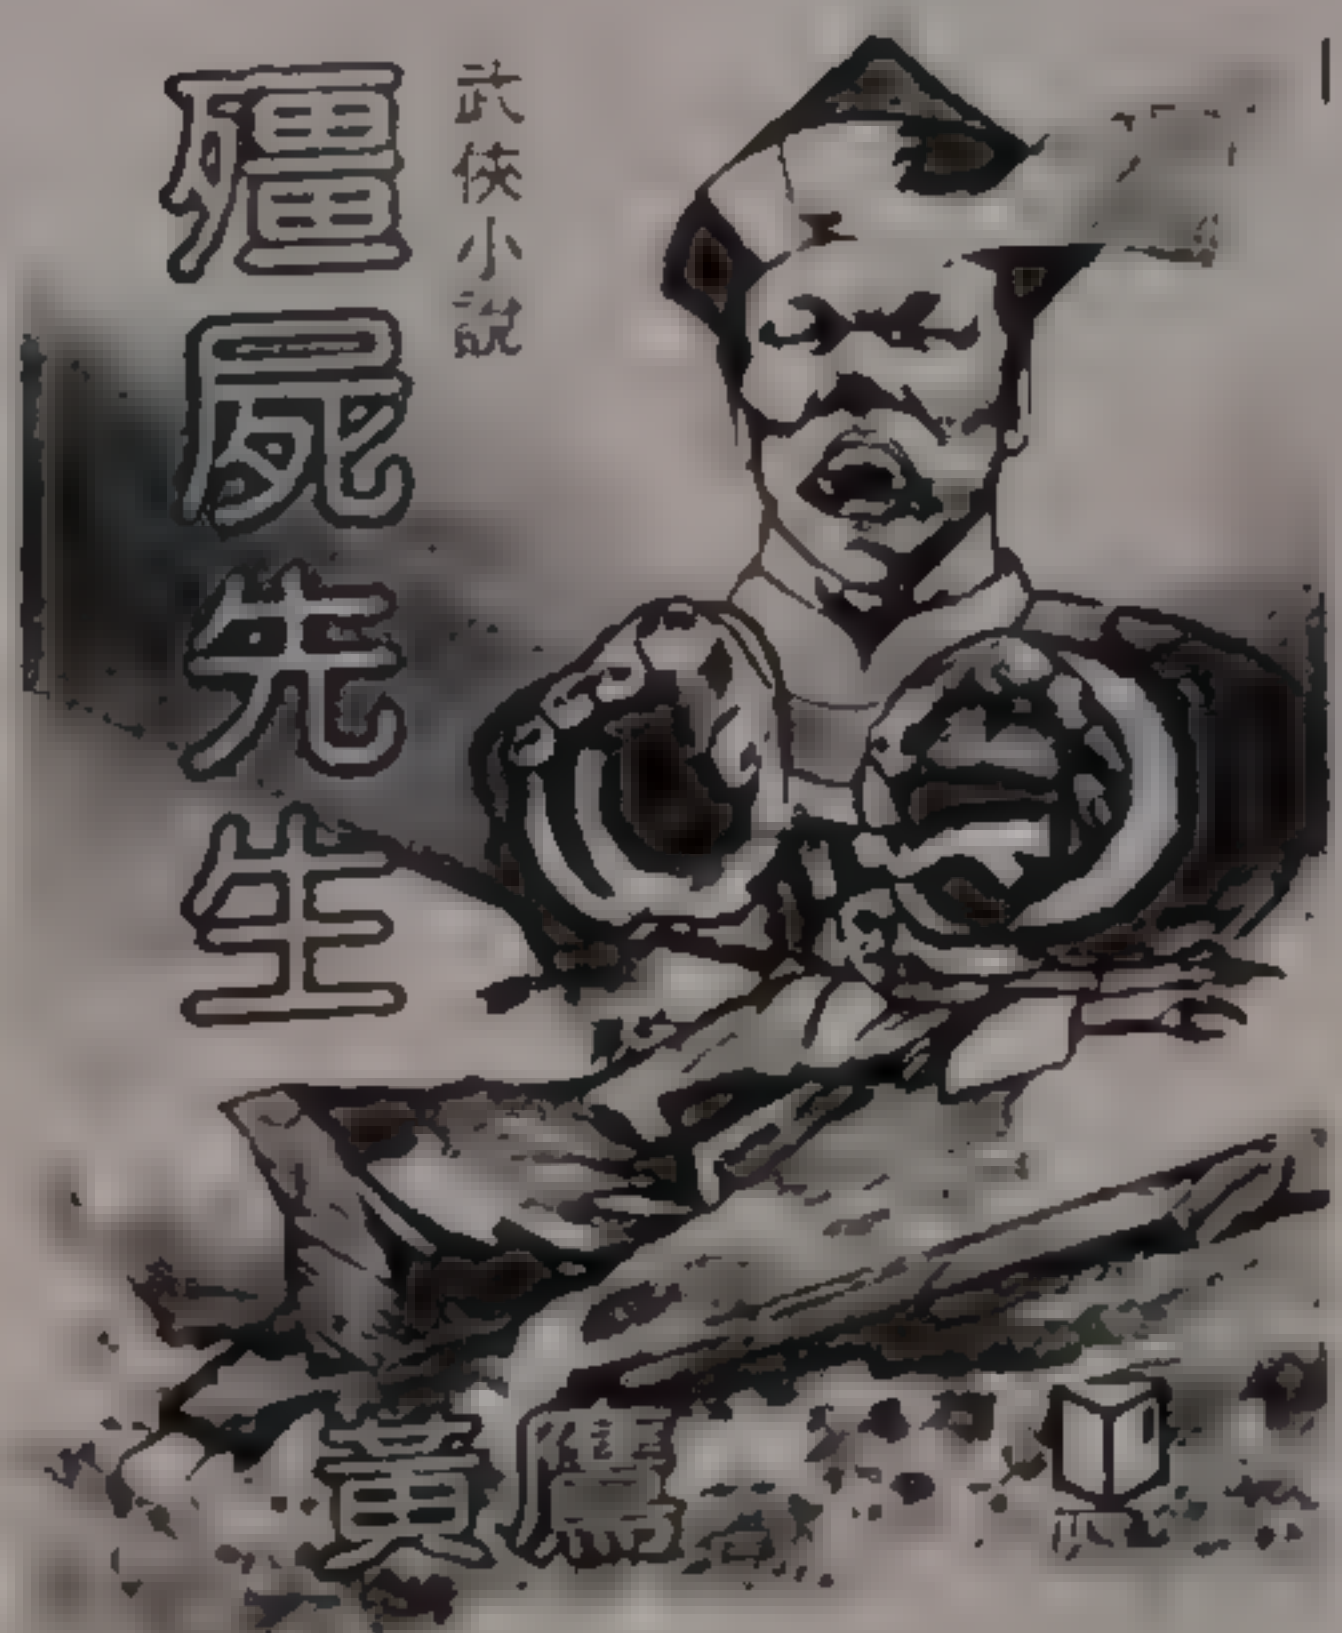 武俠小說
殭屍先生
黃鷹